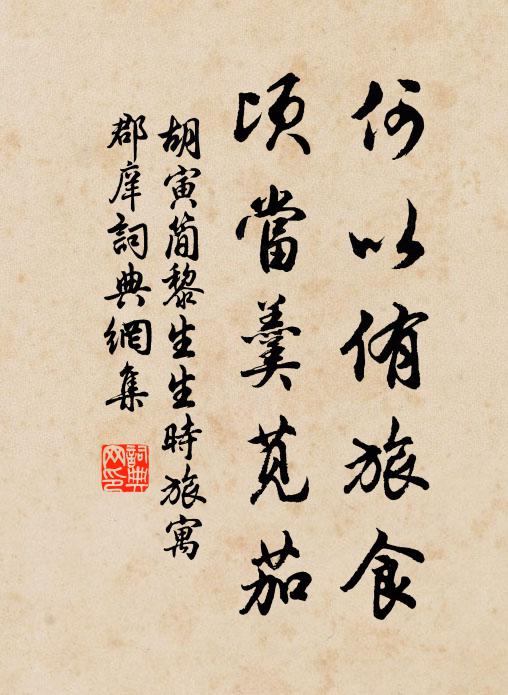 何以侑旅食
頃當羹莧茄
胡寅簡黎生生時旅寓
郡庠詞典網集
詞典网印